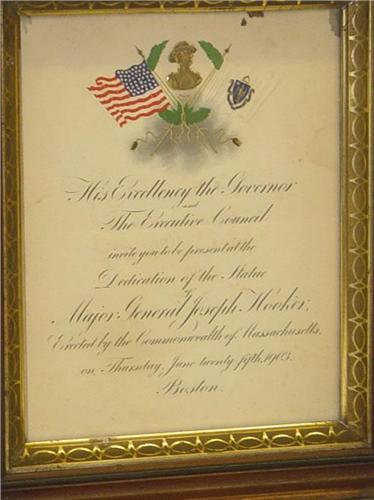 His Excellency the Governor
and
The Executive Council
invite you to be present at the
Dedication of the Statue
of
Major-General Joseph Hooker,
Erected by the Commonwealth of Massachusetts,
on Thursday, June twenty-fifth, 1903.
Boston.